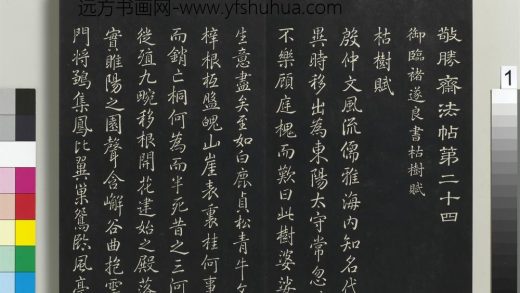 远方书画网-www.yfshuhua.com
1
敬勝齋法帖第二十四
御臨褚遂良書枯樹賦
枯樹賦
殷仲文風流儒雅海内知名代
異時移出為東陽太守常忽
不樂顧庭槐而歎曰此樹婆娑
生意盡矣至如白鹿貞松青牛文
梓根柢盤魄山崖表裏桂何事
而銷亡桐何為而半死昔之三河
徙殖九畹移根開花建始之殿落
實睢陽之園聲含嶰谷曲抱雲
門將鵷集鳳比翼巢鴛臨風亭